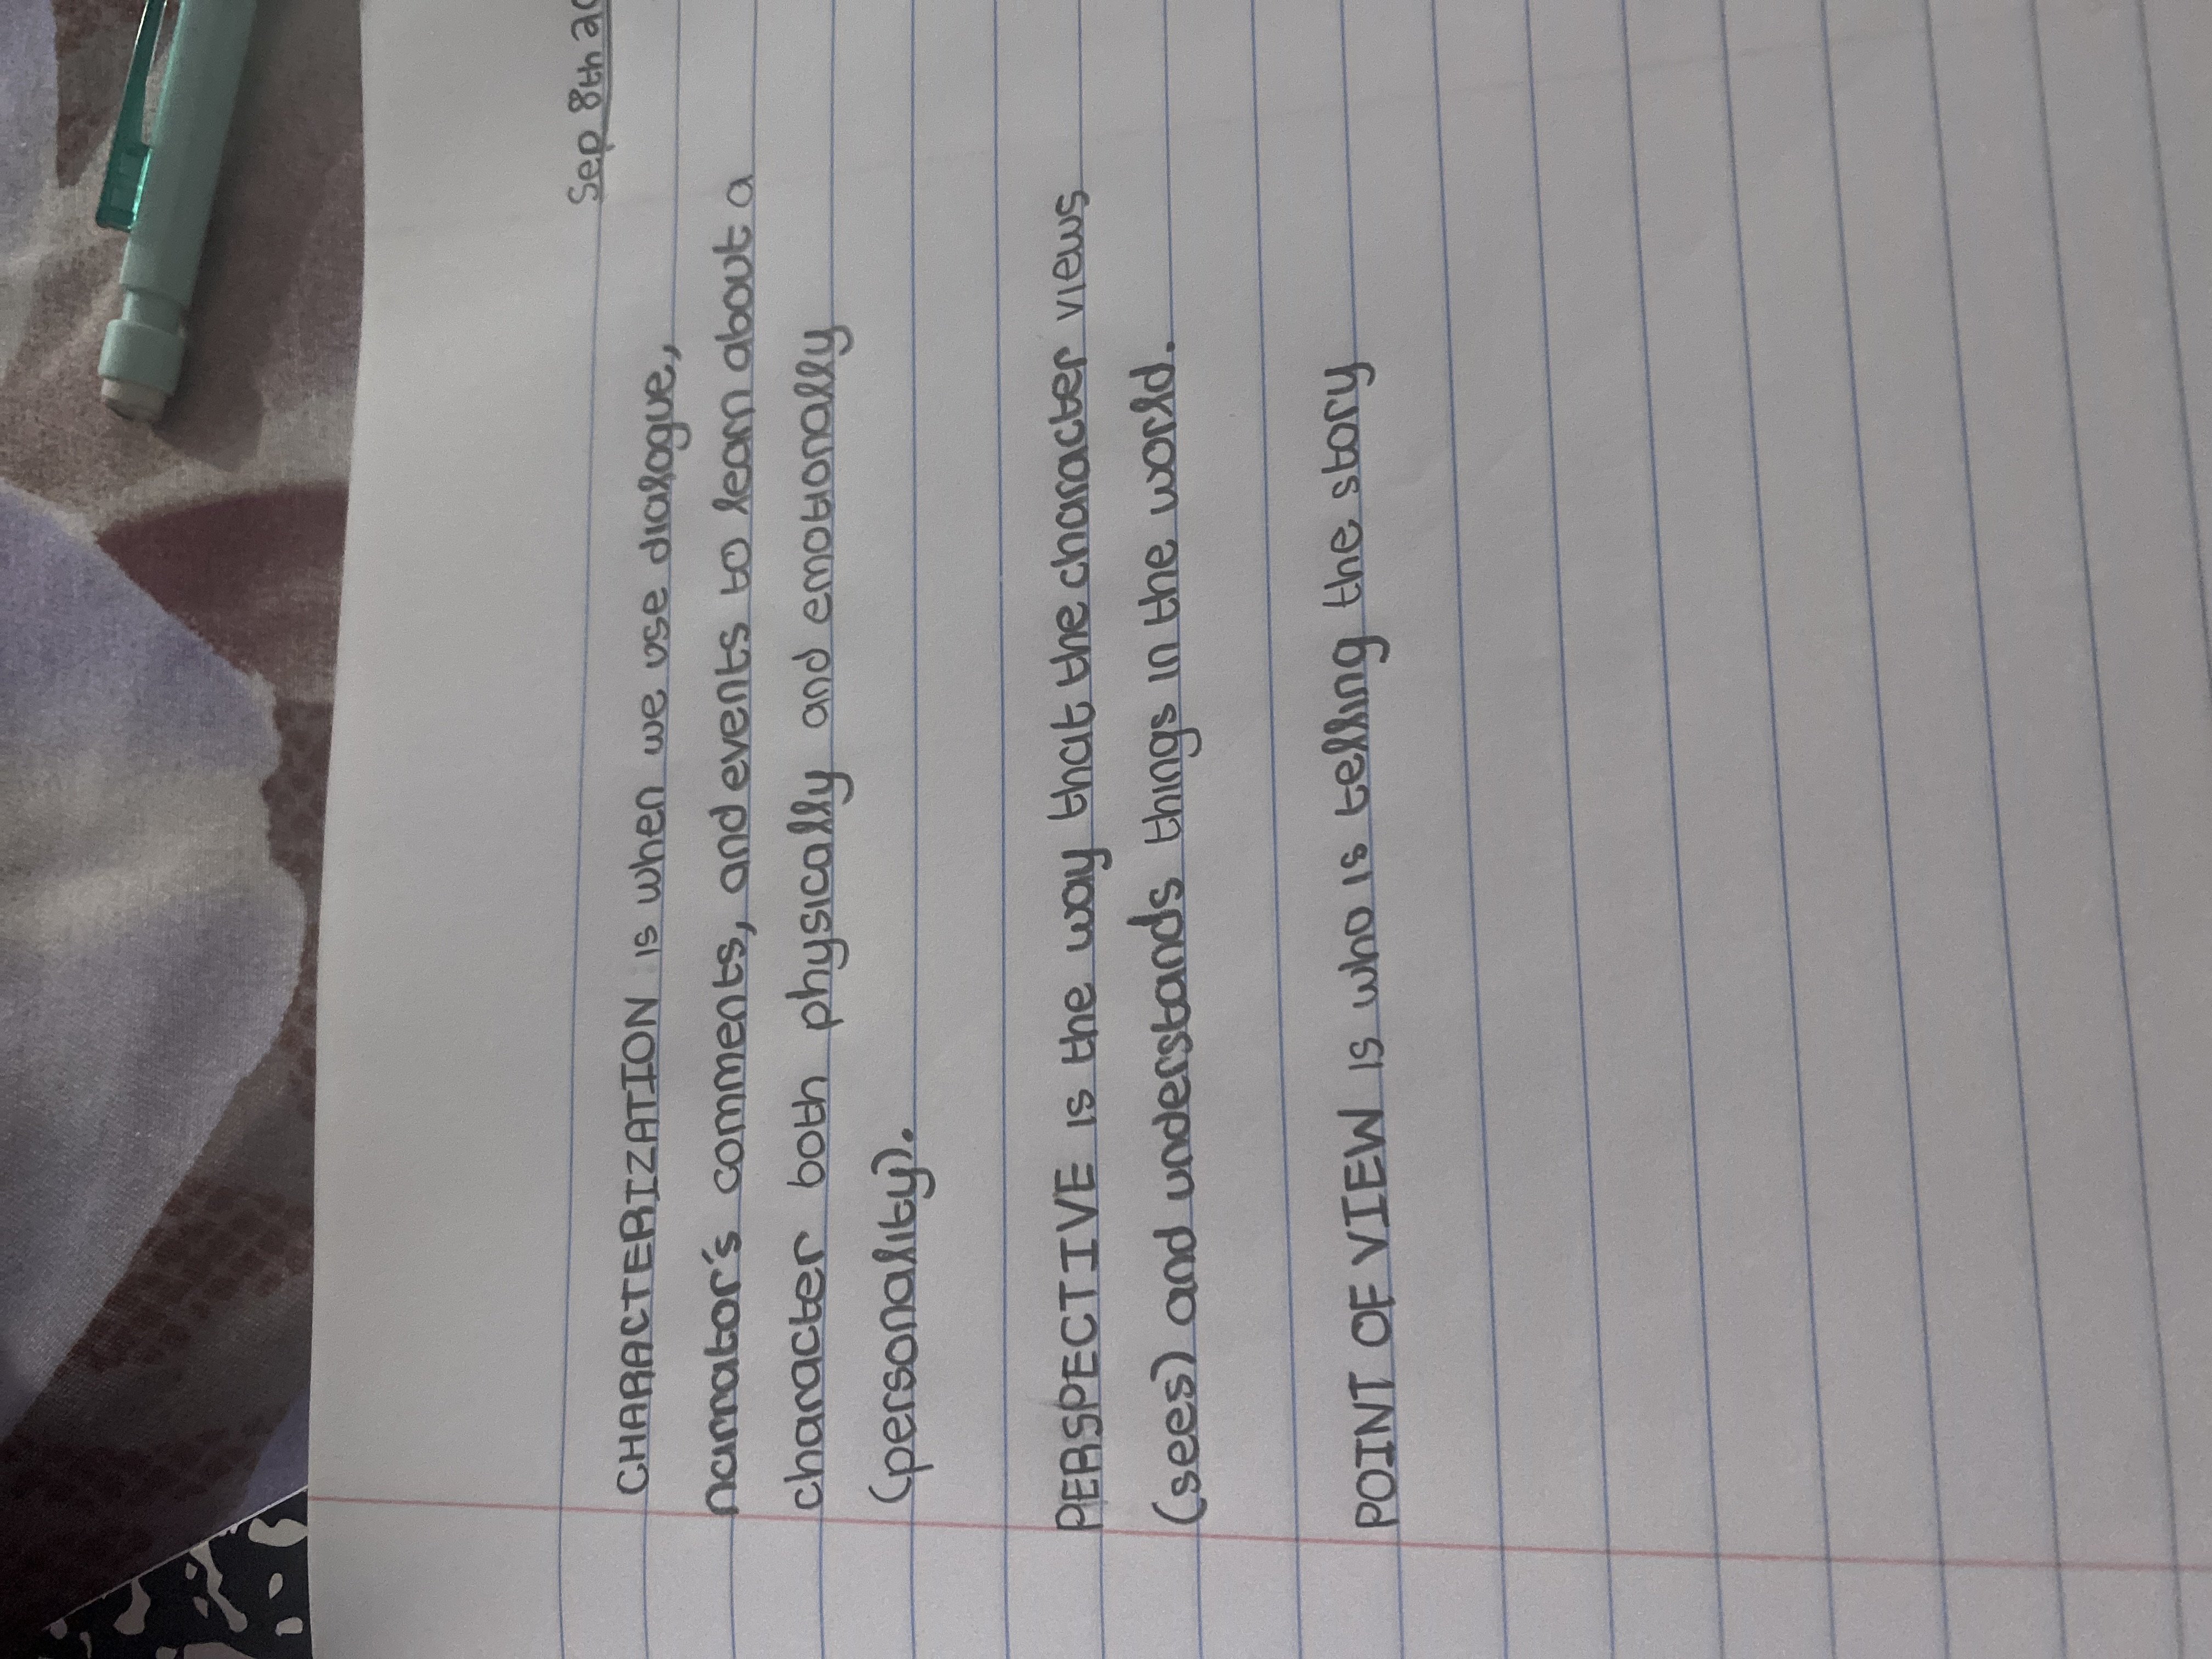 Sep 8th
CHARACTERIZATION is when we use dialogue,
narrator's comments, and events to learn about a
character both physically and emotionally
(personality).
PERSPECTIVE is the way that the character views
(sees) and understands things in the world.
POINT OF VIEW is who is telling the story